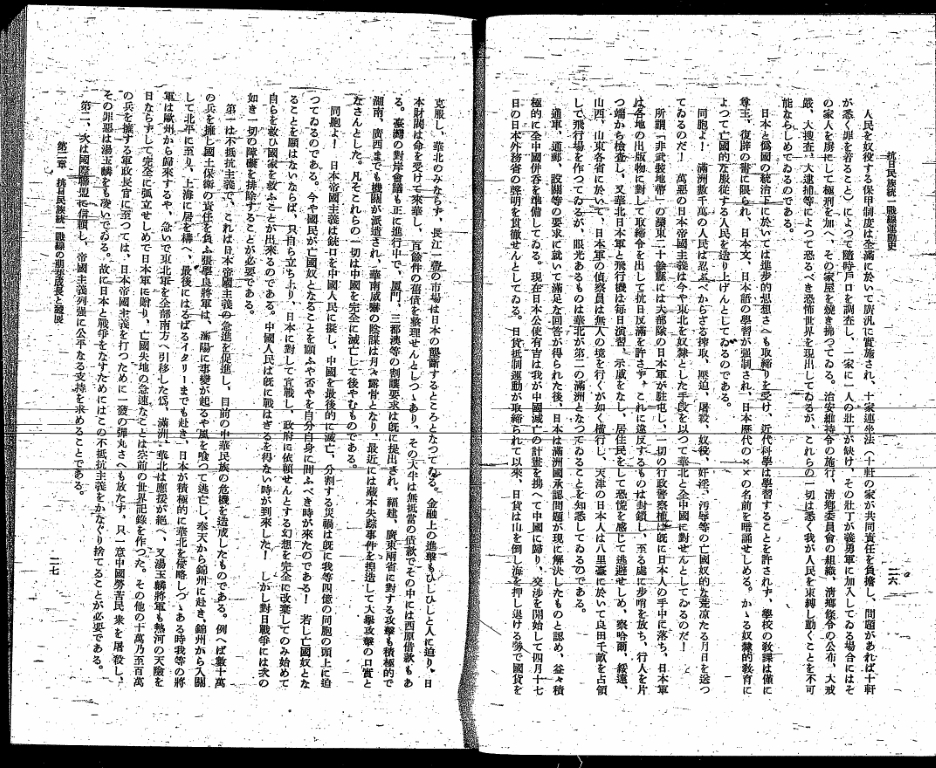 抗日民族統一戰線運動史
二六
人民を奴役する保甲制度は全滿に於いて廣汎に實施され、十家連坐法(十軒の家が共同責任を負擔し、問題があれば十軒
が悉く罪を着ること)によつて隨時戸口を調査し、一家に一人の壯丁が缺け、その壯丁が義勇軍に加入してゐる場合にはそ
の家人を牢房にして極刑を加へ、その家屋を燒き拂つてゐる。治安維持令の施行、淸鄕委員會の組織、淸鄕條令の公布、大戒
嚴、大搜査、大逮捕等によつて恐るべき恐怖世界を現出してゐるが、これらの一切は悉く我が人民を束縛し動くことを不可
能ならしめてゐるのである。
日本と僞國の統治下に於いては進歩的思想さへも取締りを受け、近代科學は學習することを許されず、學校の敎課は僅に
尊王、復辟の書に限られ、日本文、日本語の學習が强制され、日本歷代の××の名前を暗誦せしめる。かゝる奴隸的敎育に
よつて亡國的な服從する人民を造り上げんとしてゐるのである。
同胞よ! 滿洲數千萬の人民は忍ぶべからざる搾取、壓迫、屠殺、奴役、奸淫、汚辱等の亡國奴的な荒凉たる月日を送つ
てゐるのだ! 萬惡の日本帝國主義は今や東北を奴隸とした手段を以つて華北と全中國に對せんとしてゐるのだ!
所謂「非武裝地帶」の灤東二十餘縣には大部隊の日本軍が駐屯し、一切の行政警察權は既に日本人の手中に落ち、日本軍
は各地の出版物に對して取締令を出して抗日反滿を許さず、これに違反するものは封鎖し、至る處に步哨を放ち、行人を片
つ端から檢査し、又華北日本軍と飛行機は每日演習、示威をなし、居住民をして恐慌を感じて逃避せしめ、察哈爾、綏遠、
山西、山東各省に於いて、日本軍の偵察員は無人の境を行くが如く橫行し、天津の日本人は八里臺に於いて良田千畝を占領
して飛行場を作つてゐるが、眼光あるものは華北が第二の滿洲となつてゐることを知悉してゐるのである。
通車、通郵、設關等の要求に就いて滿足な回答が得られた後、日本は滿洲國承認問題が現に解決したものと認め、益々積
極的に全中國併呑を準備してゐる。現在日本公使有吉は我が中國滅亡の計畫を携へて中國に歸り、交涉を開始して四月十七
日の日本外務省の聲明を貫徹せんとしてゐる。日貨抵制運動が取締られて以來、日貨は山を倒し海を押し退ける勢で國貨を
克服し、華北のみならず、長江一帶の市場は日本の壟斷するところとなつてゐる。金融上の進擊もひしひしと人に迫り、日
本財閥は命を受けて來華し、百餘件の舊債を整理せんとしつゝあり、その大牛は無抵當の借款でその中には西原借款もあ
る。臺灣の對岸會議も正に進行中で、厦門、三都澳等の割讓要求は既に提出され、福建、廣東兩省に對する攻擊も積極的で
湖南、廣西までも機關が派遣され、華南威脅の陰謀は月々露骨となり、最近には藏本失踪事件を捏造して大擧攻擊の口實と
なさんとした。凡そこれらの一切は中國を完全に滅亡して後やむものである。
同胞よ! 日本帝國主義は銃口を中國人民に擬し、中國を最後的に滅亡、分割する災禍は既に我等四億の同胞の頭上に迫
つてゐるのである。今や國民が亡國奴となることを願ふや否やを自分自身に問ふべき時が來たのである! 若し亡國奴とな
ることを願はないならば、只自ら立ち上り、日本に對して宣戰し、政府に依賴せんとする幻想を完全に改棄してのみ始めて
自らを救ひ國家を救ふことが出來るのである。中國人民は既に戰はざるを得ない時が到來した! しかし對日戰爭には次の
如き一切の障礙を排除することが必要である。
第一は不抵抗主義で、これは日本帝國主義の急進を促進し、目前の中華民族の危機を造成したものである。例へば數十萬
の兵を擁し國土保衛の責任を負ふ張學良將軍は、瀋陽に事變が起るや風を喰つて逃亡し、奉天から錦州に赴き、錦州から入關
して北平に至り、上海に居を構へ、最後にはるばるイタリーまでも赴き、日本が積極的に華北を侵略しつゝある時我等の將
軍は歐州から歸來するや、急いで東北軍を全部南方へ引移した爲、滿洲、華北は應援が絕へ、又湯玉麟將軍も熱河の天險を
日ならずして完全に孤立せしめて日本軍に贈り、亡國失地の急速なことは空前の世界記錄を作つた。その他の十萬乃至百萬
の兵を擁する軍政長官に至つては、日本帝國主義を打つために一發の彈丸さへも放たず、只一意中國勞苦民衆を屠殺し、
その罪惡は湯玉麟をも凌いでゐる。故に日本と戰爭をなすためにはこの不抵抗主義をかなぐり捨てることが必要である。
第二、次は國際聯盟に信賴し、帝國主義列强に公平なる支持を求めることである。
第二章 抗日民族統一戰線の萌芽成長と發展
二七